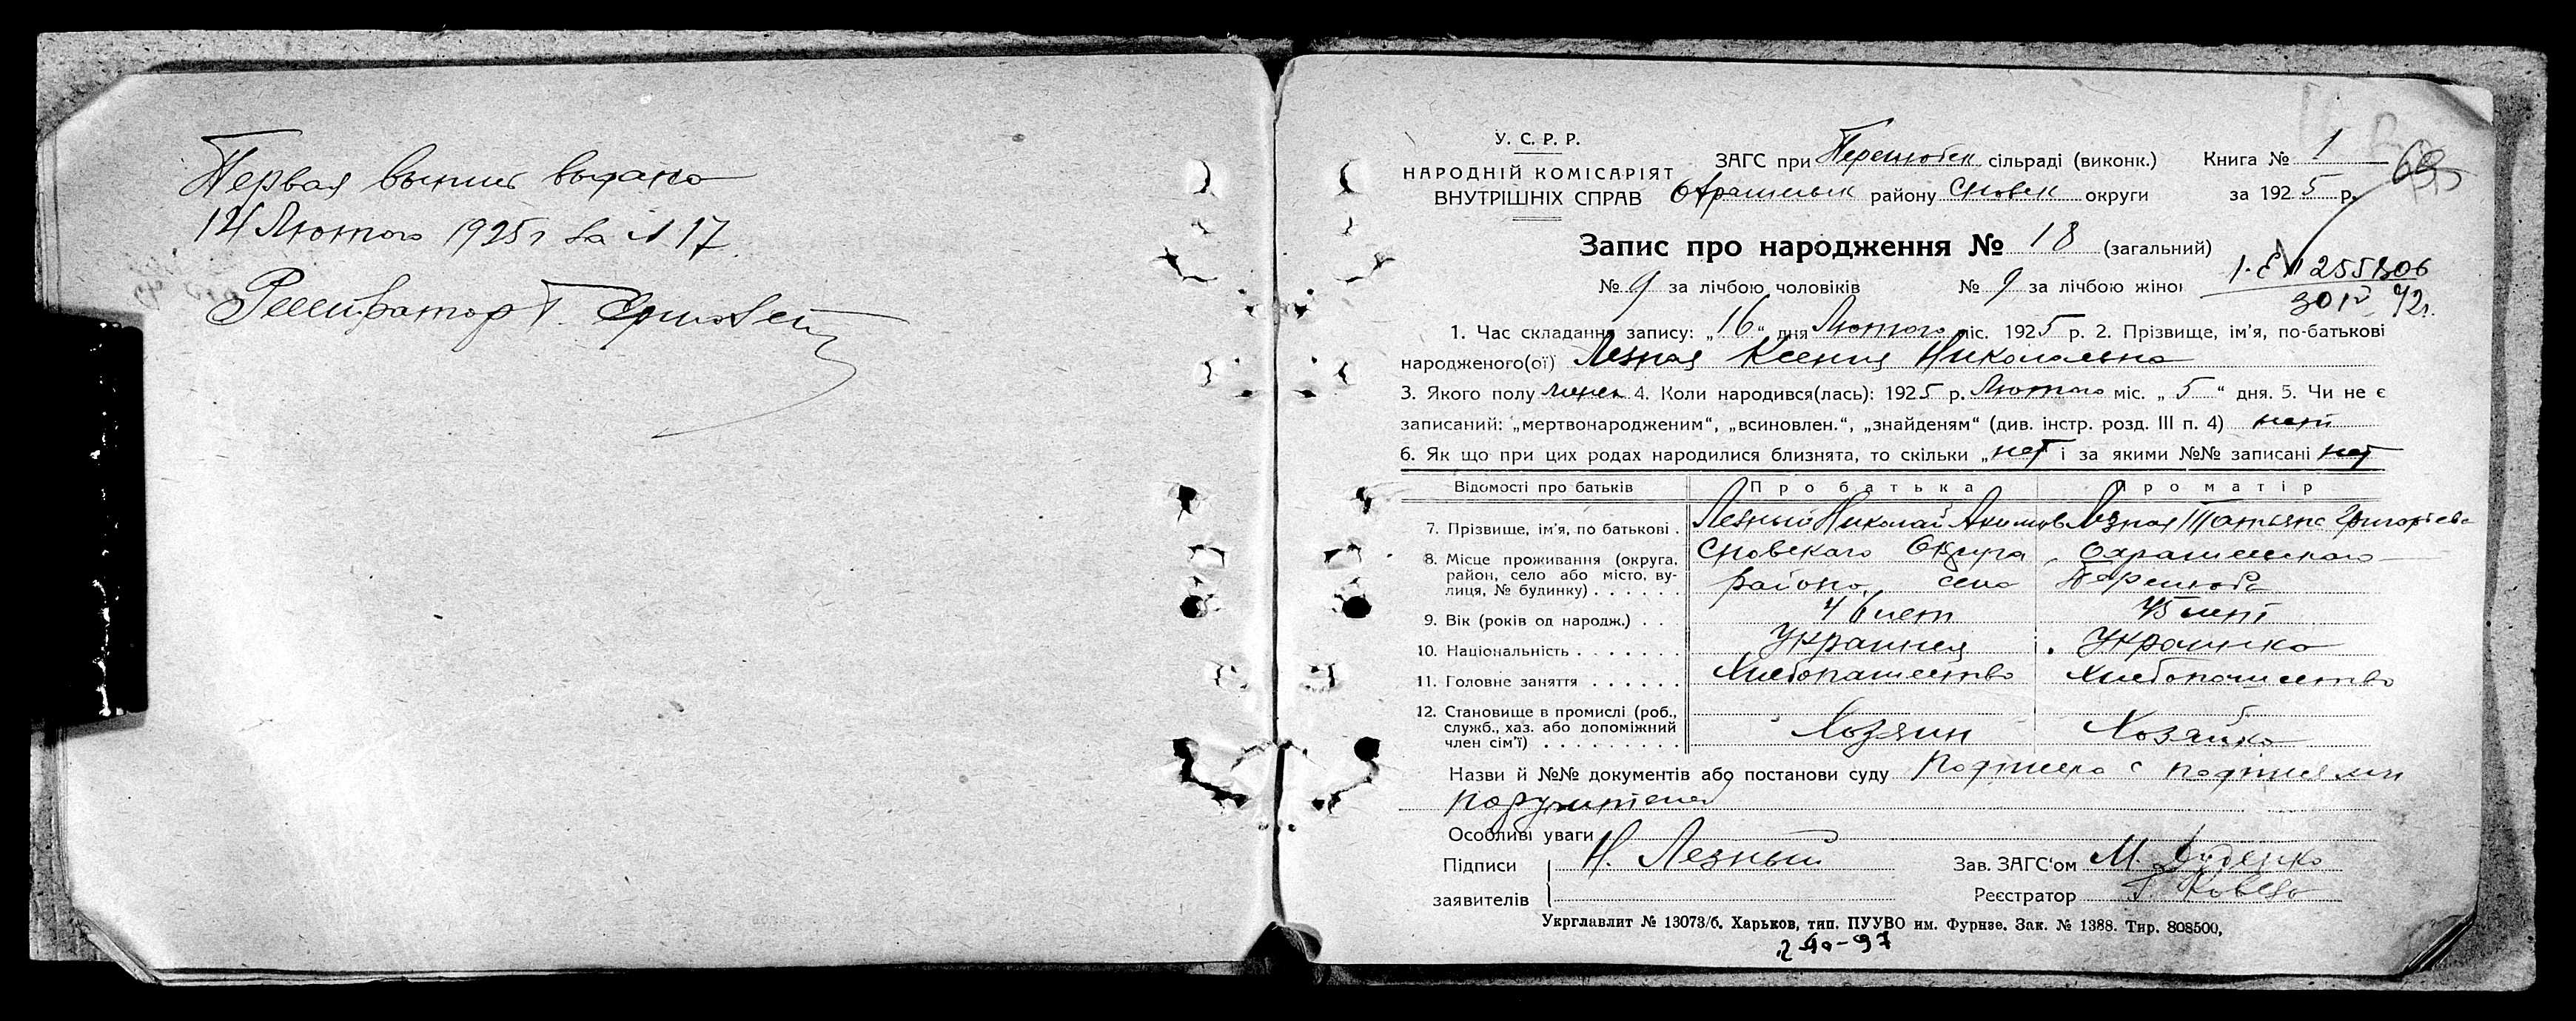 Первая выпись выдана
14 Лютого 1925 г за № 17.
Регистратор Г.
У. С. Р. Р.
НАРОДНІЙ КОМІСАРІЯТ
ВНУТРІШНІХ СПРАВ
ЗАГС при Перелюбск сільраді (виконк.) Книга № 1
району Сновск округи за 1925 р.
69
Запис про народження № 18 (загальний)
№ 9 за лічбою чоловіків № 9 за лічбою жінок
255806
30 IV 42г.
1. Час складання запису: „16“ дня Лютого міс. 1925 р. 2. Прізвище, ім'я, по-батькові
народженого(ої) Лезная Ксения Николаевна
3. Якого полу женск 4. Коли народився(лась): 1925 р. Лютого міс. „5“ дня. 5. Чи не є
записаний: „мертвонародженим“, „всиновлен.“, „знайденям“ (див. інстр. розд. III п. 4) нет
6. Як що при цих родах народилися близнята, то скільки „нет і за якими №№ записані нет
Відомості про батьків Про батька Про матір
7. Прізвище, ім'я, по батькові . Лезный Николай Акимов Лезная Татьяна Григорьева
8. Місце проживання (округа, район, село або місто, вулиця, № будинку) . . . . . . Сновскаго Округа
района, село Перелюба
9. Вік (років од народж.) . . 46 лет 45 лет
10. Національність . . . . . . . Украинец Украинка
11. Головне заняття . . . . . . Хлебопашество Хлебопашество
12. Становище в промислі (роб., служб., хаз. або допоміжний член сім'ї) . . . . . . . . . Хозяин Хозяйка
Назви й №№ документів або постанови суду Подписка с подписями
поручителей
Особливі уваги
Підписи заявителів Н. Лезный
Зав. ЗАГС'ом М. Дуденко
Реєстратор Г.
Укрглавлит № 13073/б. Харьков, тип. ПУУВО им. Фурнзе. Зак. № 1388. Тир. 808500,
240-97